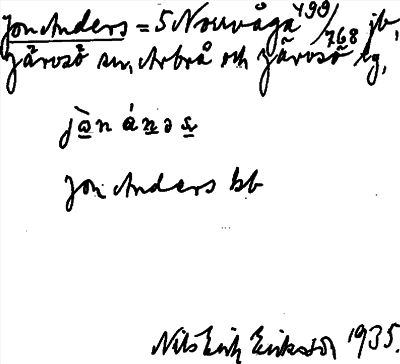 Jon Anders = 5 Norrvåga 499/768 jb,
Järvsö sn, Arbrå och Järvsö lg,
Jon Anders bb
Nils Erik Eriksson 1935.